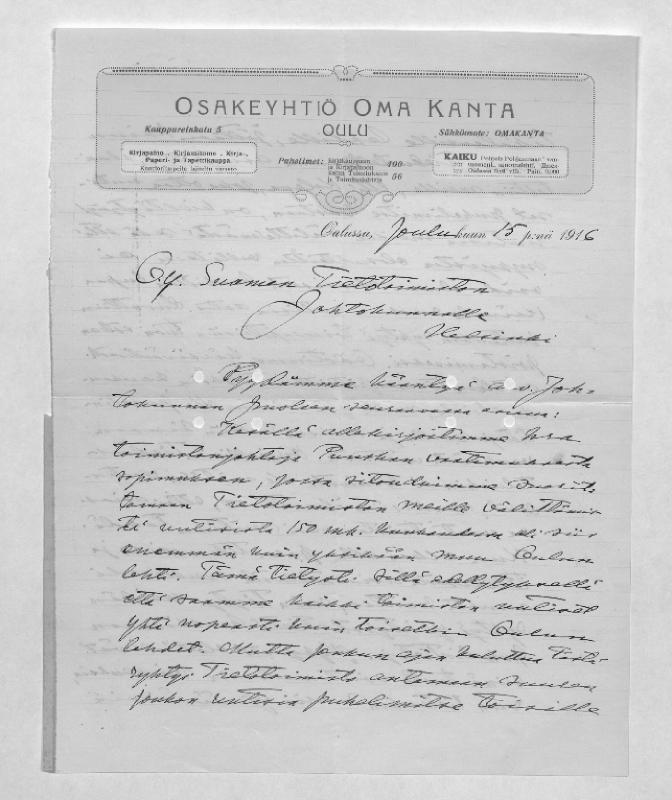 OSAKEYHTIÖ OMA KANTA
OULU
Kauppurienkatu 5
Sähköosote: OMAKANTA
Kirjapaino, Kirjansitomo, Kirja-,
Paperi- ja Tapettikauppa.
Konttoritarpeita laineltu varasto.
Puhelimet: Kirjakauppaan ja Kirjapainoon 400
ja Toimitukseen 56
KAIKU
Oulussa, Joulukuun 15 p:nä 1916
O.Y. Suomen Tietotoimiston
Johtokunnalle
Helsinki
Pyydämme kääntyä a.v. Joh-
tokunnan puoleen seuraavassa asiassa:
Kesällä allekirjoitimme hra
toimistonjohtaja Puuskan vaatimuksesta
sopimuksen, jossa sitouduimme suorit-
tamaan Tietotoimiston meille välittämis-
tä uutisista 150 mk. kuukaudessa eli siis
enemmän kuin yksikään muu Oulun
lehti. Tämä tietysti sillä edellytyksellä
että saamme kaikki toimiston uutiset
yhtä nopeasti kuin toisetkin Oulun
lehdet. Mutta jonkun ajan kuluttua tästä
ryhtyi Tietotoimisto antamaan suuren
joukon uutisia puhelimitse toisille